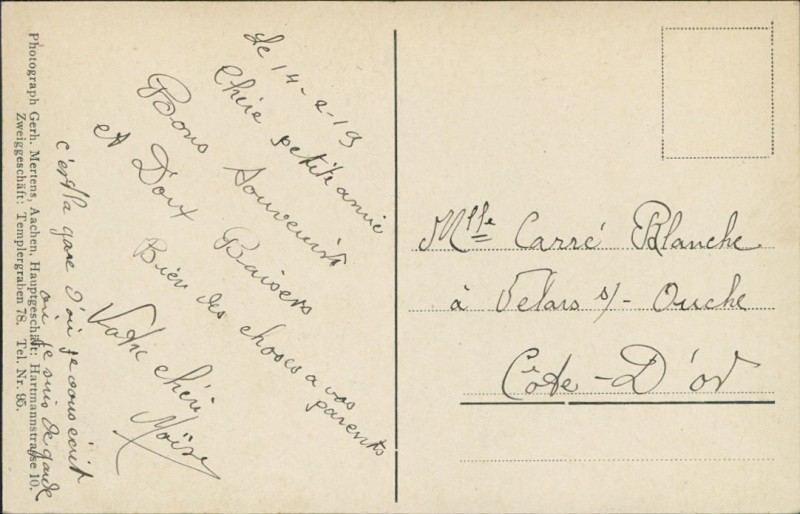 Le 14-2-19
Chère petite amie
Bons Souvenirs
et Doux Baisers
Bien des choses a vos
parents
Votre chéri
Moïse
c'est la gare d'où je vous écrit
où je suis de garde
Photograph Gerh. Mertens, Aachen, Hauptgeschäft: Hartmannstrasse 10.
Zweiggeschäft: Templergraben 78. Tel. Nr. 95.
Mlle Carré Blanche
à Velars s/- Ouche
Côte-D'or